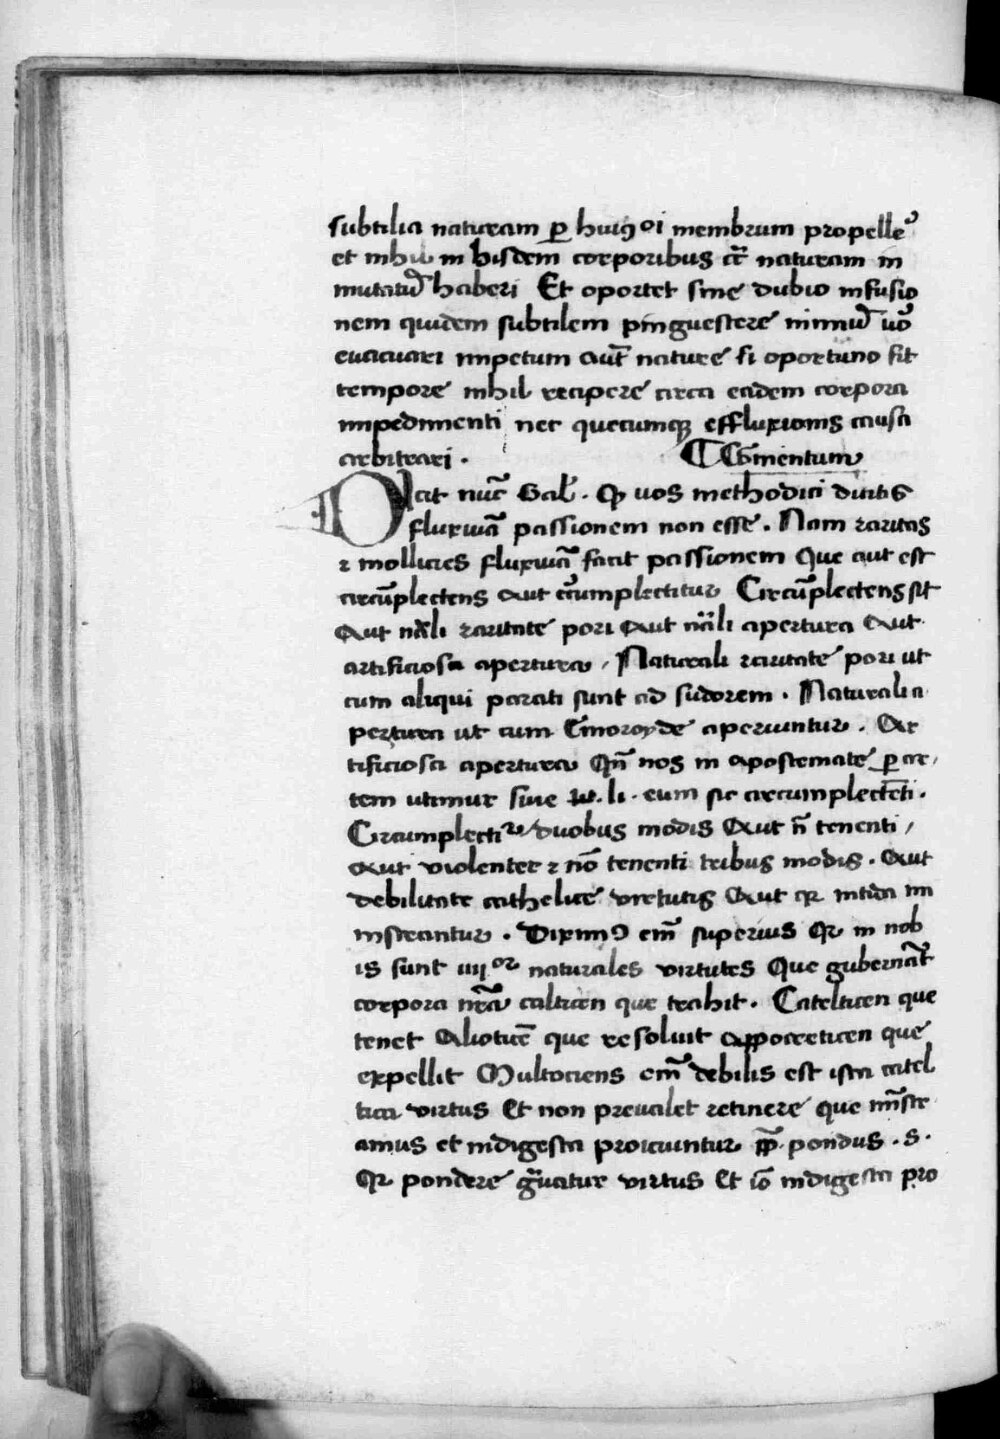 subtilia naturam ꝑ huiꝰoi membrum propelleꝰ
et nihil in hisdem corporibus cͨt naturam in
mutatū haberi Et oportet sine dubio infusio
nem quidem subtilem pinguescere nimiū uͦo
euacuari impetum aut̄ nature si oportuno sit
tempore nihil recipere circa eadem corpora
impedimenti nec quecumqꝫ effluxionis causa
arbitrari .
¶ Cōmentum
Dicit nūc Gal̄ . ꝙ uos methodici dicitis
fluxuū passionem non esse . Nam raritas
⁊ mollities fluxuā facit passionem Que aut est
circūplectens Aut cͨumplectitur Circūplectens sit
Aut nāli raritate pori Aut nāli apertura Aut
artificiosa apertura / Naturali raritate pori ut
cum aliqui parati sunt ad sudorem . Naturali a
pertura ut cum Emoroyde aperiuntur . Ar
tificiosa apertura Qn̄ nos in apostemate ꝑ ar /
tem utimur siue li . cum sic circumplectēti .
Circumplectiᵗʳ duobus modis Aut n̄ tenenti /
Aut violenter ⁊ nō tenenti tribus modis . Aut
debilitate cathelice virtutis Aut qꝛ mi
nistrantur . Diximꝰ em̄ superius Qꝛ in nob
is sunt iiijᵒʳ naturales virtutes Que gubernāt
corpora nr̄a calticen que trahit . Catelticen que
tenet Alioticē que resoluit appocreticen que
expellit Multociens em̄ debilis est ista catel
tica virtus Et non preualet retinere que mīstr
amus et indigesta proiciuntur pp̄ . pondus . s .
Qꝛ pondere gͣuatur virtus Et iō indigesta pro